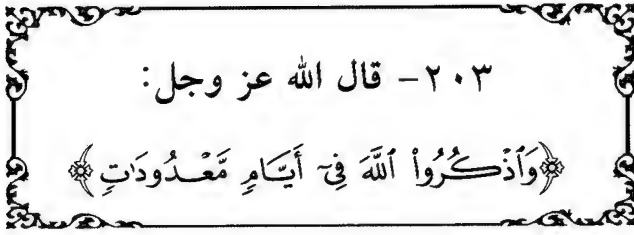 ٢٠٣- قال الله عز وجل:
﴿وَٱذۡكُرُواْ ٱللَّهَ فِيٓ أَيَّامٖ مَّعۡدُودَٰتٖ﴾